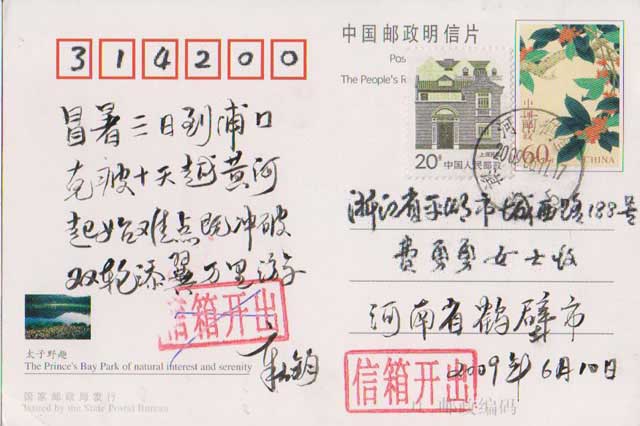 314200
中国邮政明信片
Pos
The People's R
中国邮政
60
CHINA
20分 中国人民邮政
冒暑三日到浦口
克疲十天越黄河
起始难点既冲破
双轮添翼万里游
信箱开出
浙江省平湖市城西路188号
费勇勇女士收
河南省鹤壁市
2009年6月10日
信箱开出
邮政编码
太子野趣
The Prince's Bay Park of natural interest and serenity
国家邮政局发行
Issued by the State Postal Bureau